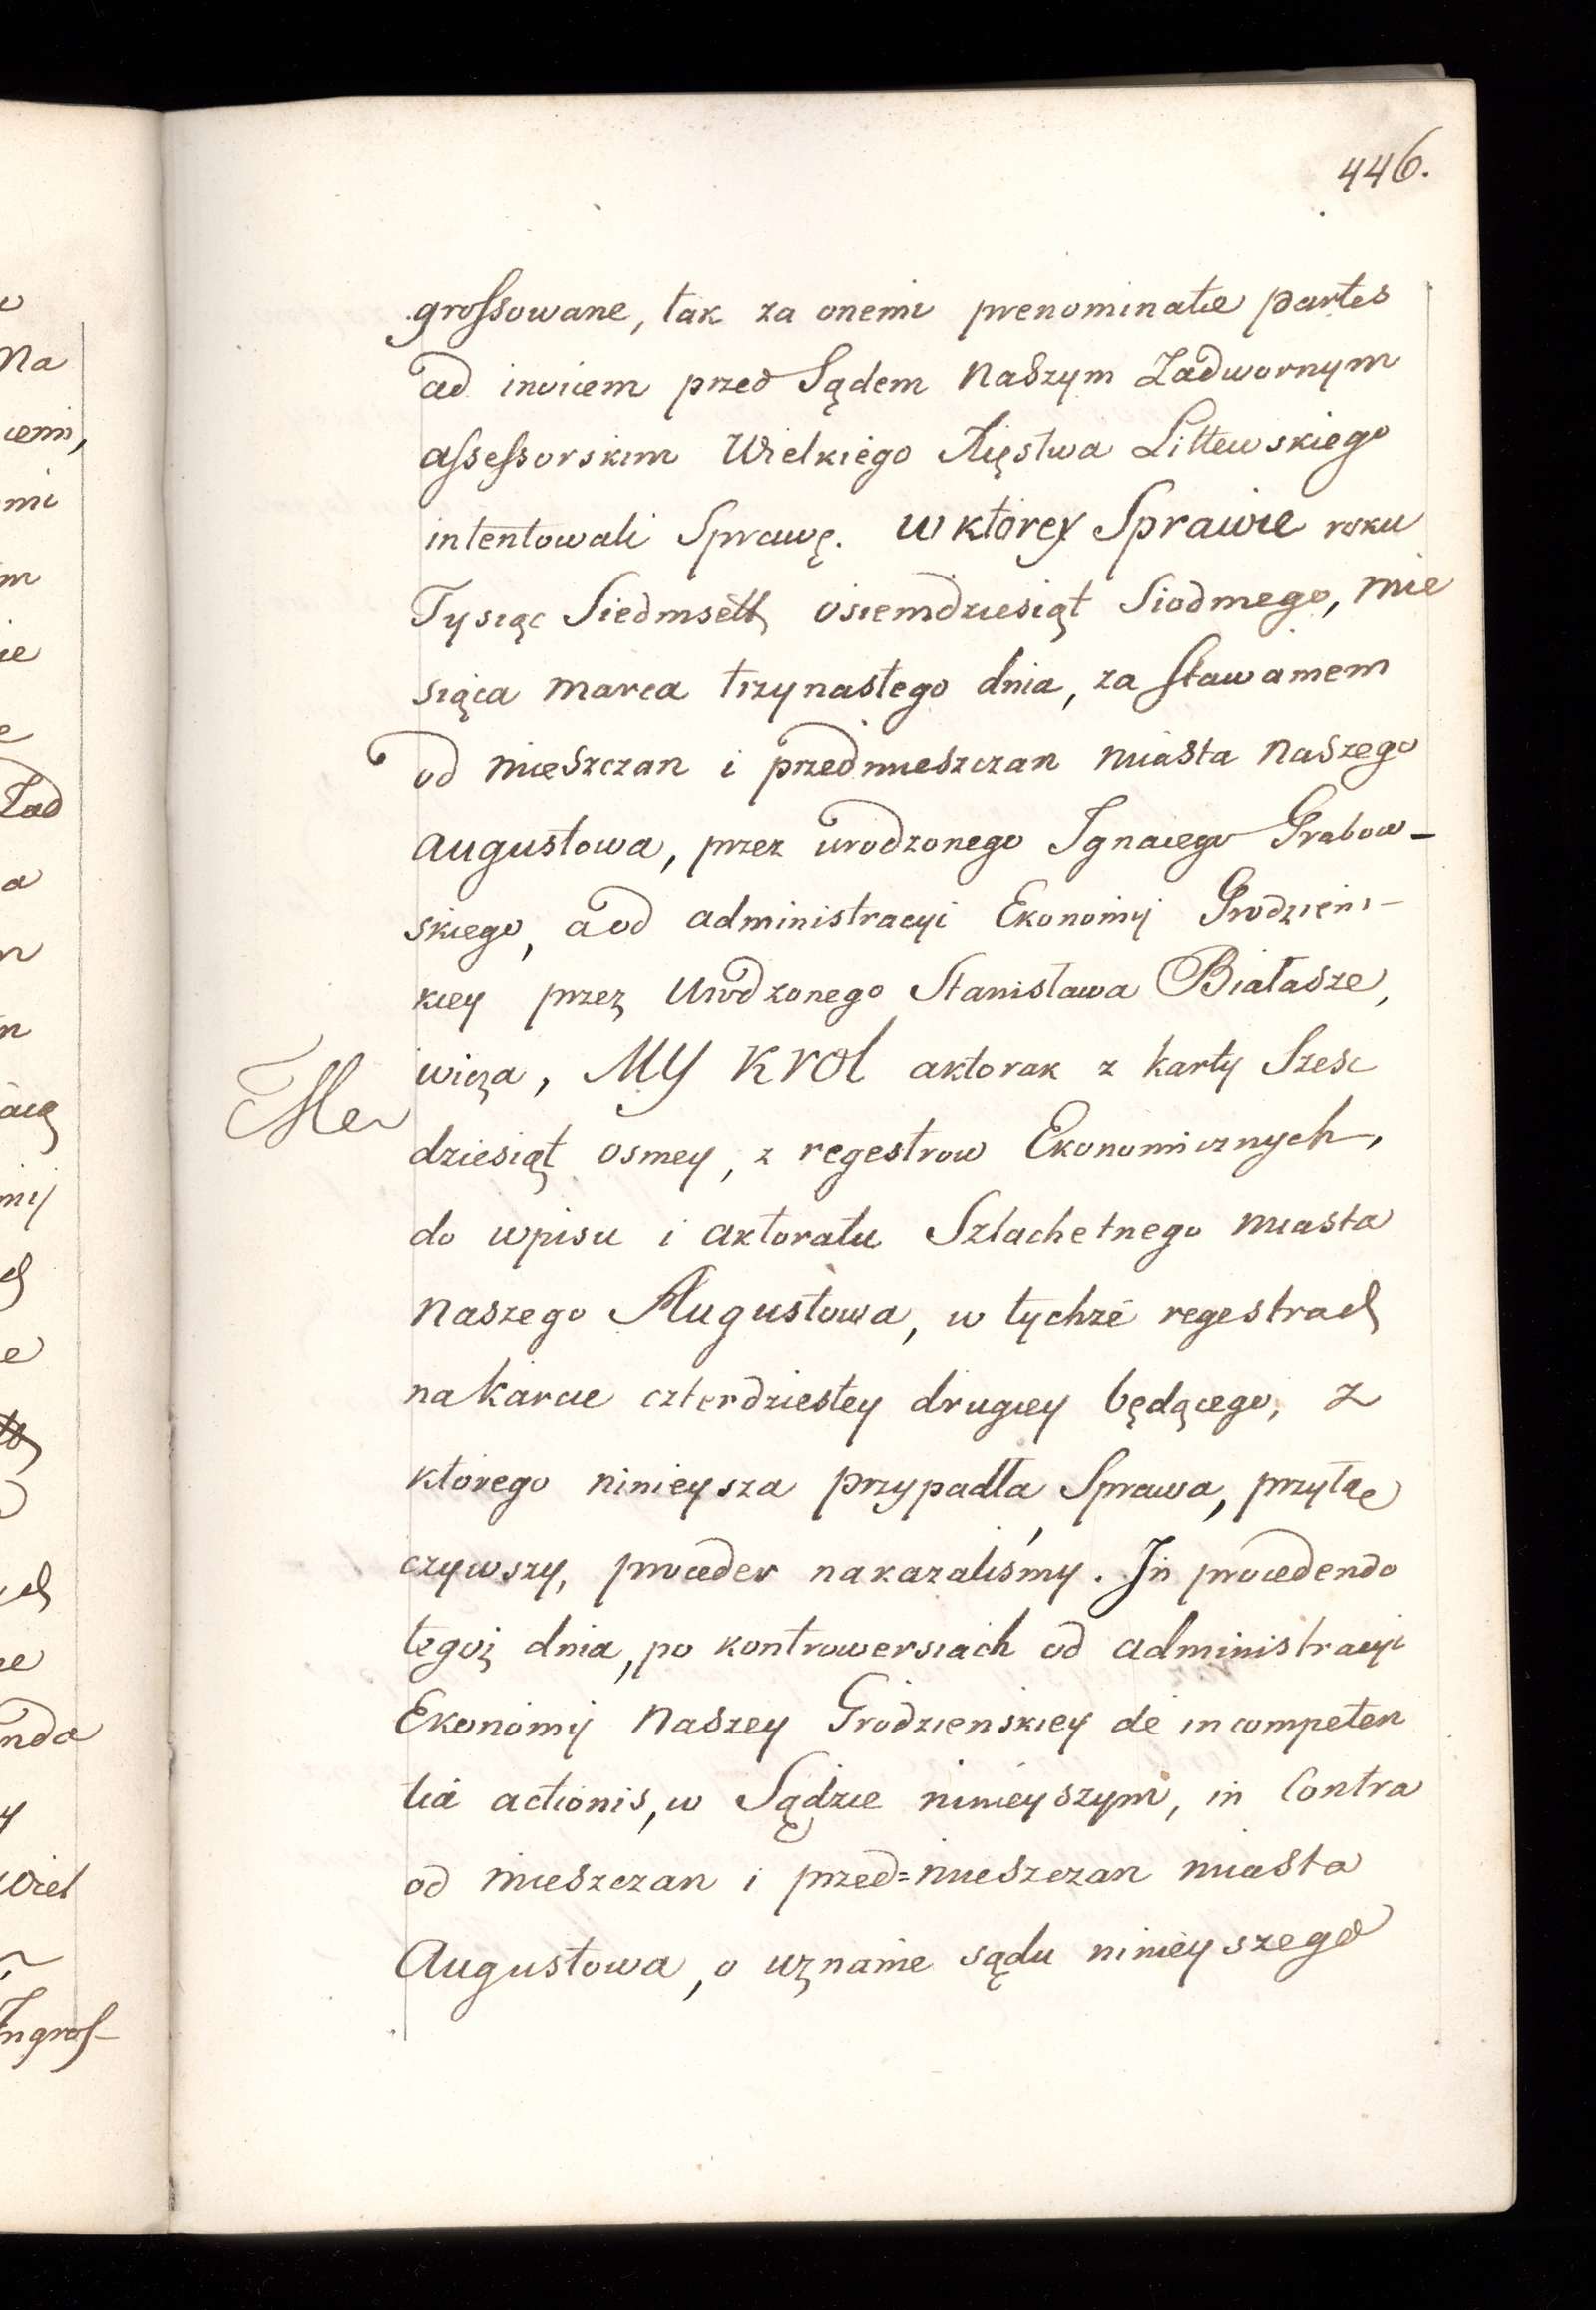 446.
grossowane, tak za onemi prenominatie partes
ad invicem przed Sądem Naszym Zadwornym
assessorskim Wielkiego Xięstwa Littewskiego
intentowali Sprawę. w ktorey Sprawie roku
Tysiąc Siedmset osiemdziesiąt Siodmego, mie
siąca marca trzynastego dnia, za stawaniem
od mieszczan i przedmieszczan miasta naszego
augustowa, przez urodzonego Ignacego Grabow-
skiego, a od administracyi Ekonomij Grodzien-
kiey przez Urodzonego Stanisława Białasze,
wicza, MY KROL aktorat z karty Szesc
dziesiąt osmey, z regestrow Ekonomicznych,
do wpisu i aktoratu Szlachetnego miasta
naszego Augustowa, w tychże regestrach
na karcie czterdziestey drugiey będącego, z
ktorego ninieysza przypadła Sprawa, przyłą
czywszy, proceder nakazaliśmy. In procedendo
tegoż dnia, po kontrowersiach od administracyi
Ekonomij Naszey Grodzienskiey de incompeten
tia actionis, w Sądzie ninieyszym, in Contra
od mieszczan i przed=mieszczan miasta
Augustowa, o uznanie sądu ninieyszego
Na
cemi,
mi
m
ie
e
Zad
a
n
n
mij
ch
e
ch
ie
nda
y
Wiel
Ingros-